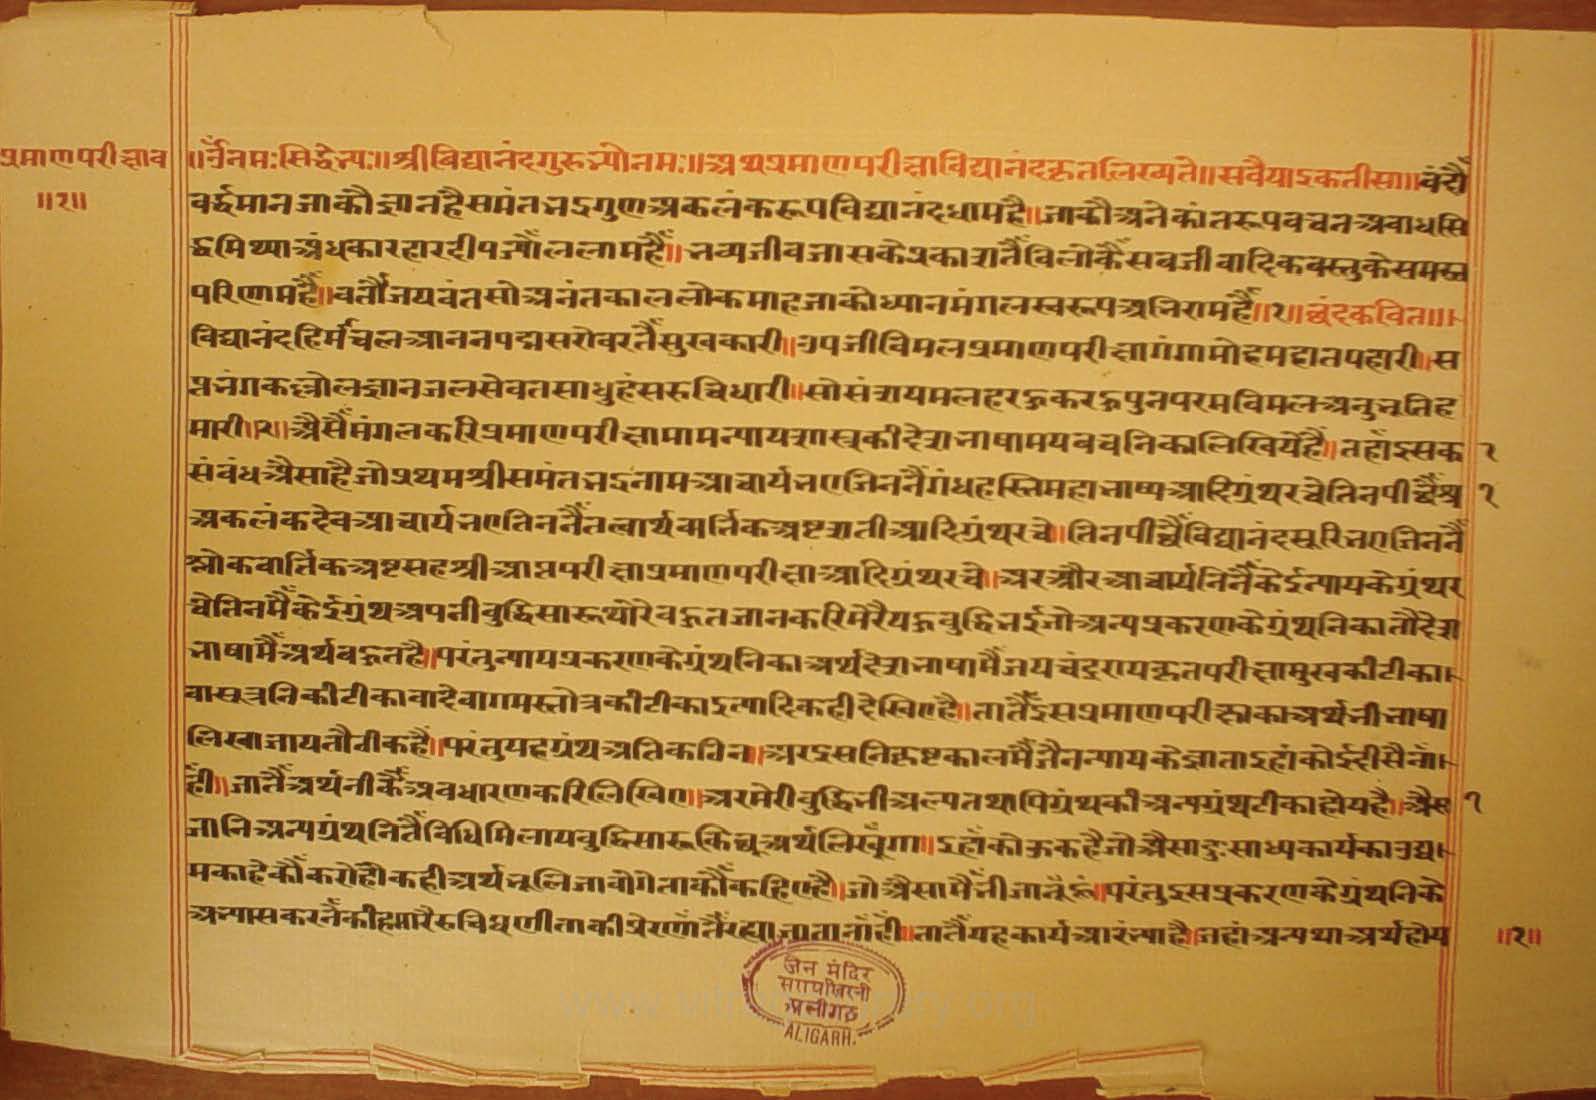 प्रमाणपरीक्षाव
॥१॥
॥ॐनमःसिद्धेभ्यः॥श्रीविद्यानंदगुरुभ्योनमः॥अथप्रमाणपरीक्षाविद्यानंदकृतलिख्यते॥सवैयाइकतीसा॥वंदौं
वर्द्धमानजाकौज्ञानहैसमंतभद्रगुणअकलंकरूपविद्यानंदधामहै॥जाकौअनेकांतरूपवचनअबाधसि
द्धमिथ्याअंधकारहारदीपज्यौंललामहैं॥भव्यजीवजासकेप्रकाशतैंविलोकैंसबजीवादिकवस्तुकेसमस्त
परिणमहैं॥वर्तौजयवंतसोअनंतकाललोकमाहजाकोध्यानमंगलस्वरूपअभिरामहैं॥१॥छंदकवित॥।
विद्यानंदहिमचलआननपद्मसरोवरतैंसुखकारी॥उपजीविमलप्रमाणपरीक्षागंगामोहमहातपहारी॥स
प्तभंगकल्लोलज्ञानजलसेवतसाधुहंसरुचिधारी॥सोसंशयमलहरऊकरऊपुनपरमविमलअनुभूतिह
मारी॥२॥अैसैंमंगलकरिप्रमाणपरीक्षानामान्यायशास्त्रकीदेशभाषामयवचनिकालिखियेहैं॥तहांइसक १
संबंधअैसाहैजोप्रथमश्रीसमंतभद्रनामआचार्यभएजिननैंगंधहस्तिमहाभाष्यआदिग्रंथरचेतिनपीछैंश्र १
अकलंकदेवआचार्यभएतिननैंतत्वार्थवार्तिकअष्टशतीआदिग्रंथरचे॥तिनपीछैंविद्यानंदसूरिभएजिननैं
श्लोकवार्तिकअष्टसहश्रीआप्तपरीक्षाप्रमाणपरीक्षाआदिग्रंथरचे॥अरऔरआचार्यनिनैंकेईन्यायकेग्रंथर
चेतिनमैंकेईग्रंथअपनीबुद्धिसारूथोरेबऊतजानकरिमेरैयऊबुद्धिभईजोअन्यप्रकरणकेग्रंथनिकातौदेश
भाषामैंअर्थबऊतहै॥परंतुन्यायप्रकरणकेग्रंथनिकाअर्थदेशभाषामैंजयचंद्ररायकृतपरीक्षामुखकीटीका।
वासूत्रनिकीटीकावादेवागमस्तोत्रकीटीकाइत्यादिकहीदेखिएहै॥तातैंइसप्रमाणपरीक्षाकाअर्थभीभाषा
लिखाजायतौनीकहै॥परंतुयहग्रंथअतिकठिन॥अरइसनिकृष्टकालमैंजैनन्यायकेज्ञाताइहांकोईदीसैनां।
ही॥जातैंअर्थनीकैंअवधारणकरिलिखिए॥अरमेरीबुद्धिभीअल्पतथापिग्रंथकीअन्यग्रंथटीकाहोयहै॥अैस १
जानिअन्यग्रंथनितैंविधिमिलायबुद्धिसारूकिछूअर्थलिखूंगा॥इहांकोऊकहैजोअैसादुःसाध्यकार्यकाउद्य।
मकाहेकौंकरोहौकहीअर्थभूलिजावोगेताकौंकहिएहै॥जोअैसामैंभीजानूंहूं॥परंतुइसप्रकरणकेग्रंथनिके
अभ्यासकरनैंकीहमारैरुचिघणीताकीप्रेरणांतैंरह्याजातानांही॥तातैंयहकार्यआरंभ्याहै॥जहांअन्यथाअर्थहोय
॥१॥
जैन मंदिर
अलीगढ़
ALIGARH.